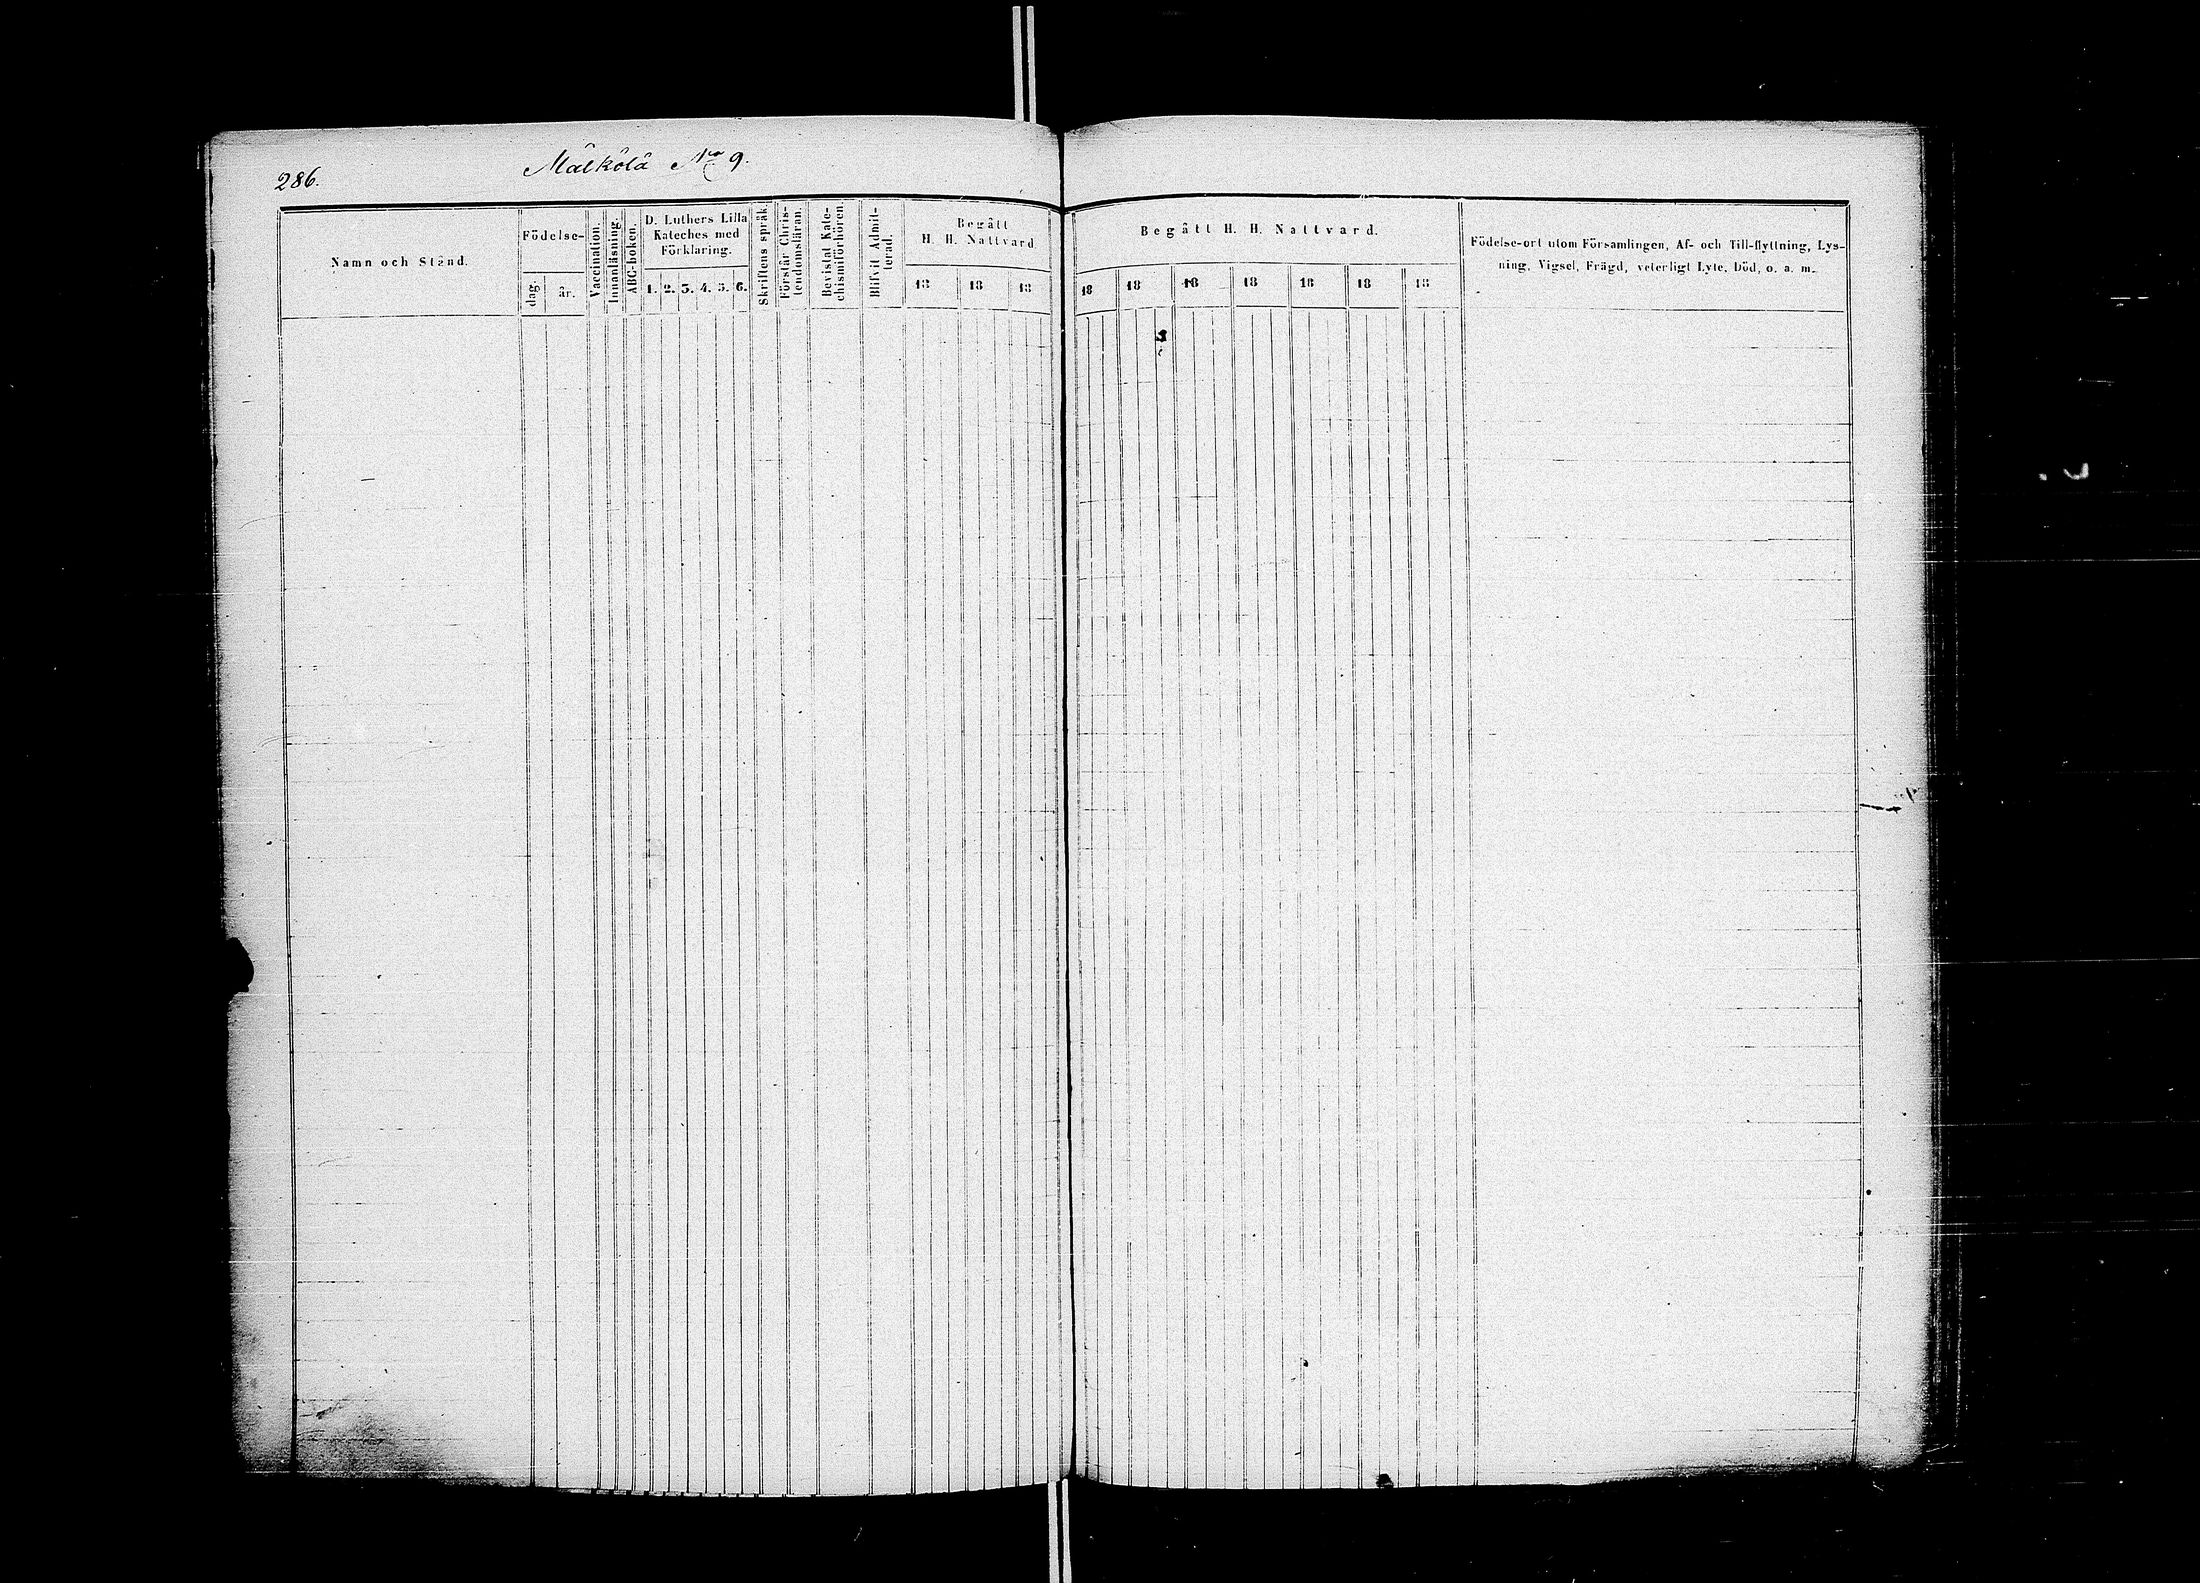 286.
Mälkölä Nro 9.
Namn och Stånd.
Födelse-
dag.
år.
Vaccination.
Innanläsning.
ABC-boken.
D. Luthers Lilla
Kateches med
Förklaring.
1. 2. 3. 4. 5. 6.
Skriftens språk.
Förstår Chris-
tendomsläran.
Bevistat Kate-
chismiförhören.
Blifvit Admit-
terad.
Begått
H. H. Nattvard
18 18 18
Begått H. H. Nattvard.
18 18 18 18 18 18 18
Födelse-ort utom Församlingen, Af- och Till-flyttning, Lys-
ning, Vigsel, Frägd, veterligt Lyte, Död, o. a. m.